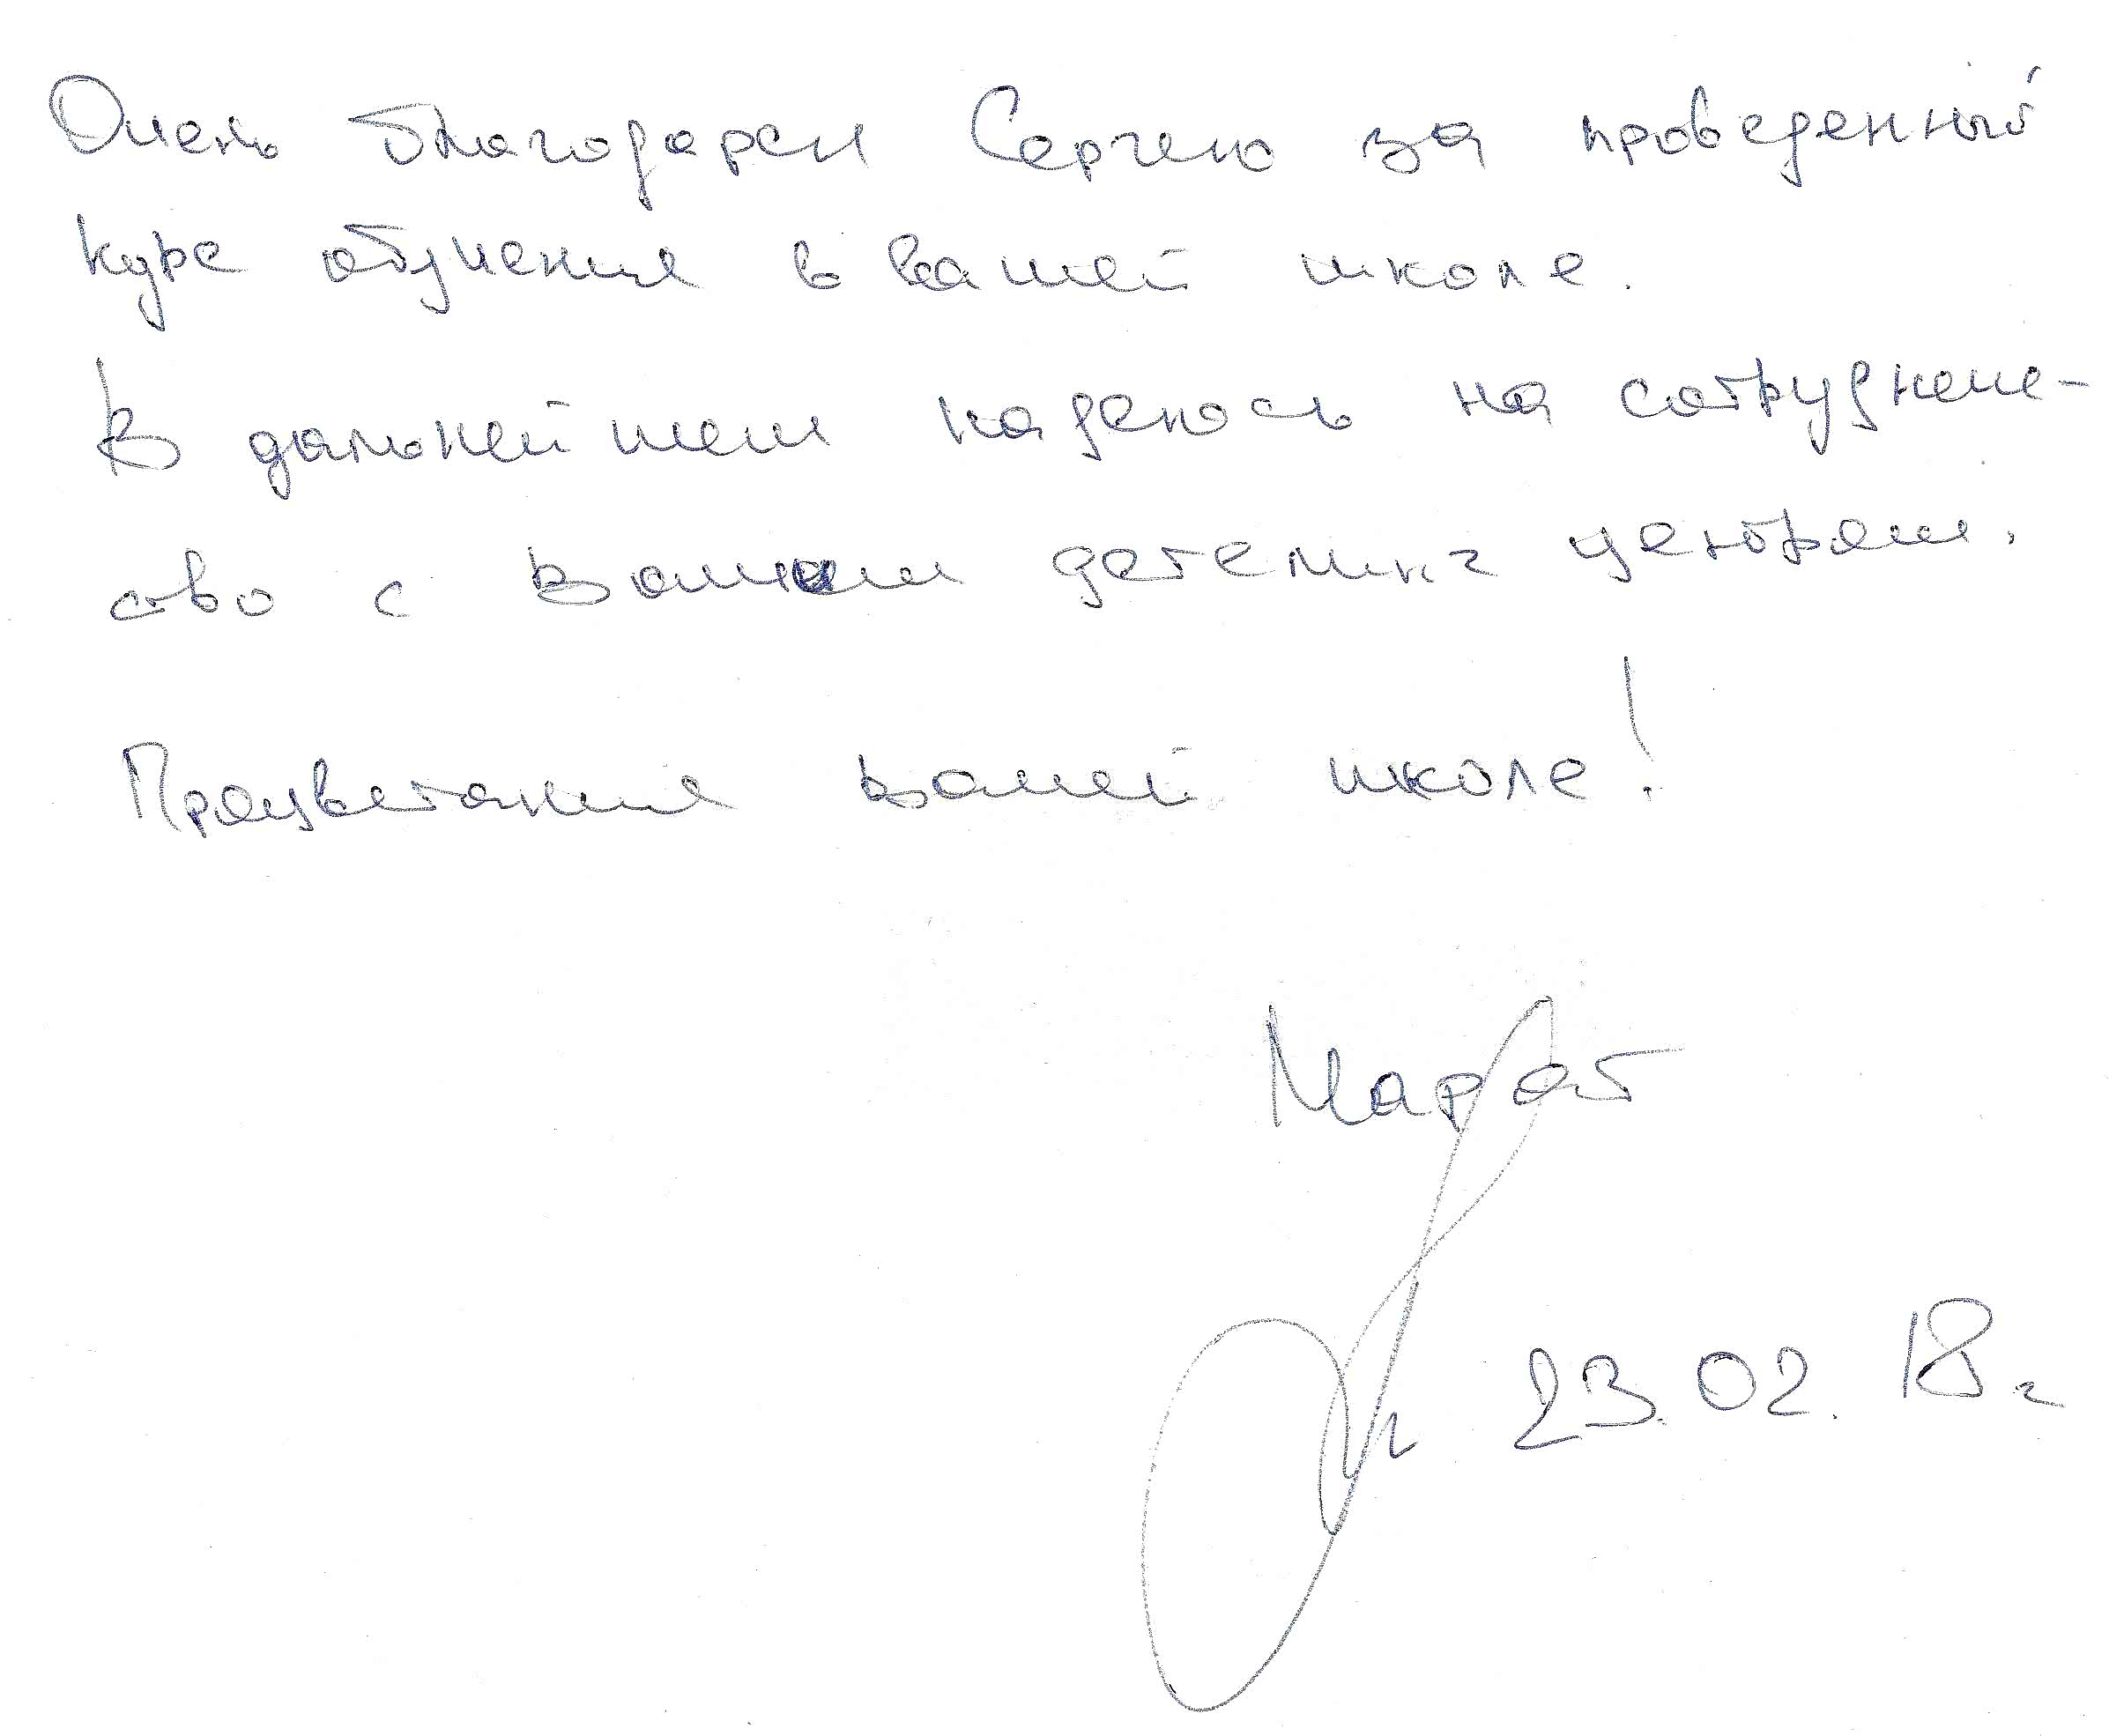 Очень благодарен Сергею за проведенный
курс обучения в вашей школе.
В дальнейшем надеюсь на сотрудниче-
ство с Вашим детейлинг центром.
Процветания вашей школе!
Марат
23.02.18г